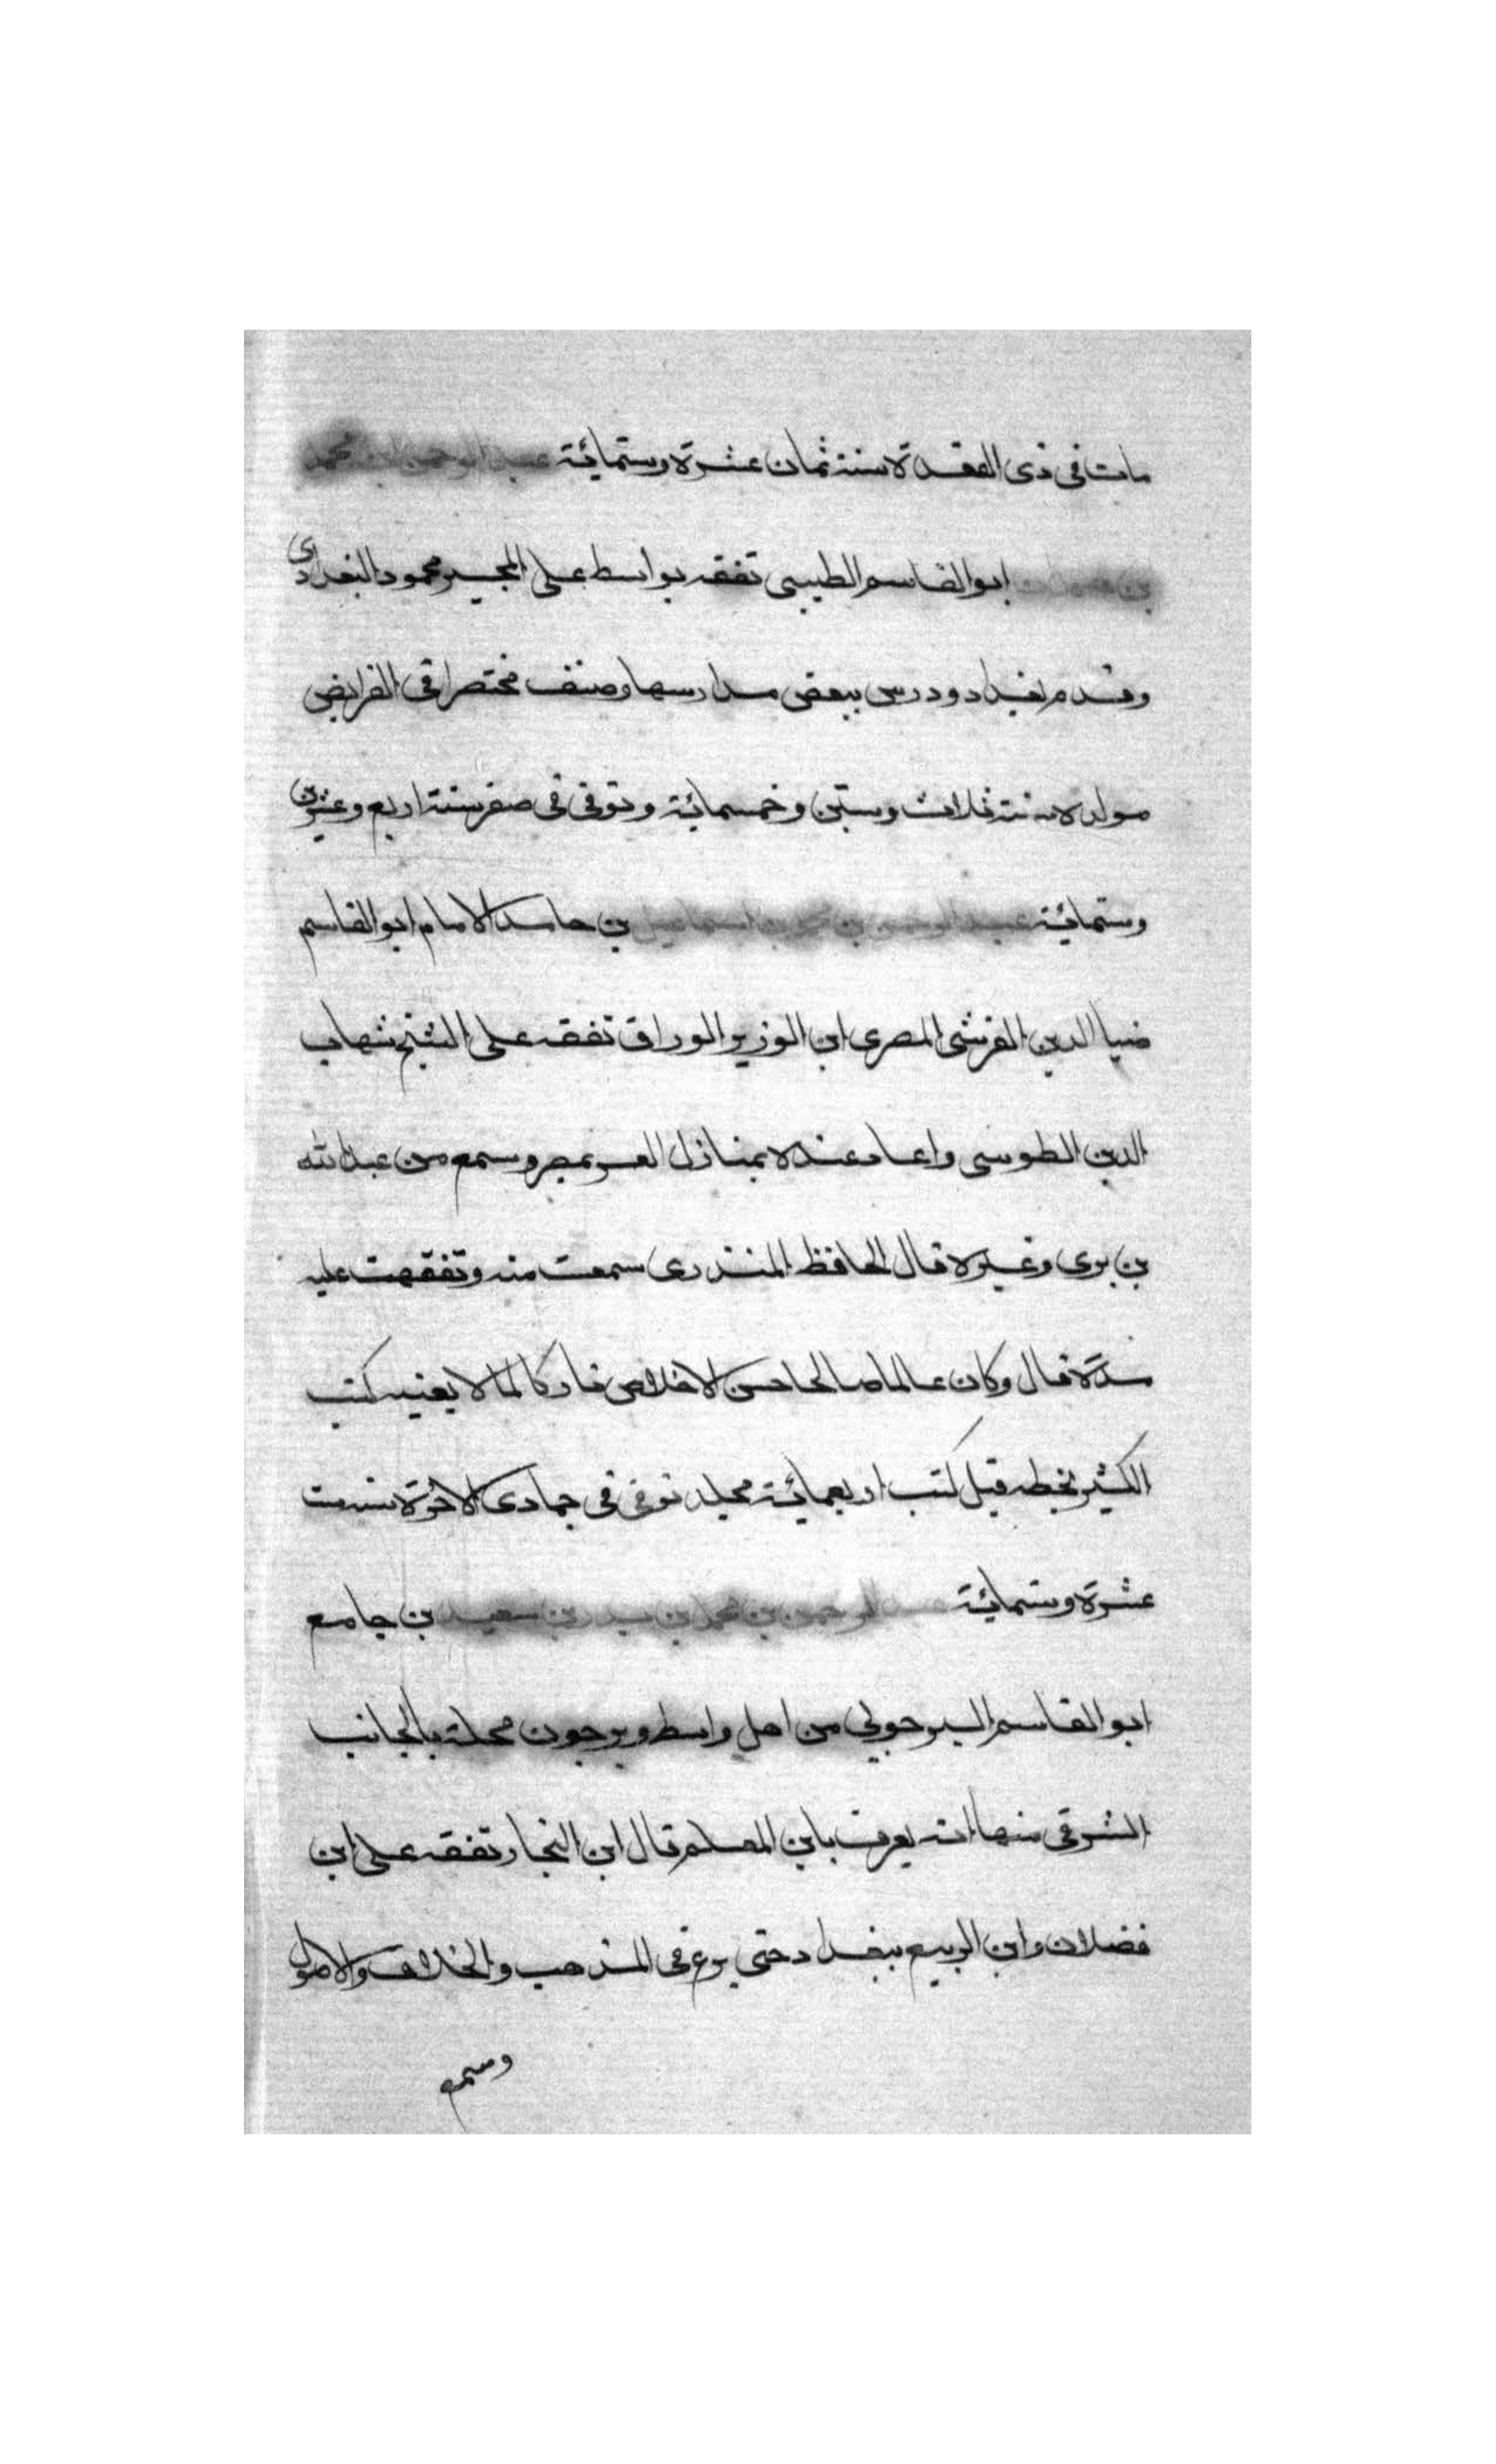 مات فى ذى القعدة سنة ثمان عشرة وستمائة عبد الرحمن بن محمد
بن ابو القاسم الطيبى تفقه بواسط على المجير محمود البغدادى
وقدم بغداد ودرس ببعض مدارسها وصنف مختصرا فى الفرايض
مولده سنة ثلاث وستين وخمسمائة وتوفى فى صفر سنة اربع وعشرين
وستمائة عبد الرحمن بن محمد بن اسماعيل بن حامد الامام ابو القاسم
ضيا الدين القرشى المصرى ابن الوزير الوراق تفقه على الشيخ شهاب
الدين الطوسى واعاد عنده بمنازل العز بمصر وسمع من عبد الله
بن برى وغيره قال الحافظ المنذرى سمعت منه وتفقهت عليه
مدة قال وكان عالما صالحا حسن الاخلاص تاركا لما لا يعنيه كتب
الكثير بخطه قيل كتب اربعمائة مجلد توفى فى جمادى الاخرة سنة ست
عشرة وستمائة عبد الرحمن بن محمد بن بدر بن سعيد بن جامع
ابو القاسم البرجونى من اهل واسط وبرجون محلة بالجانب
الشرقى منها انه يعرف بابن المعلم قال ابن النجار تفقه على ابن
فضلان وابن الربيع ببغداد حتى برع فى المذهب والخلاف والاصول
وسمع